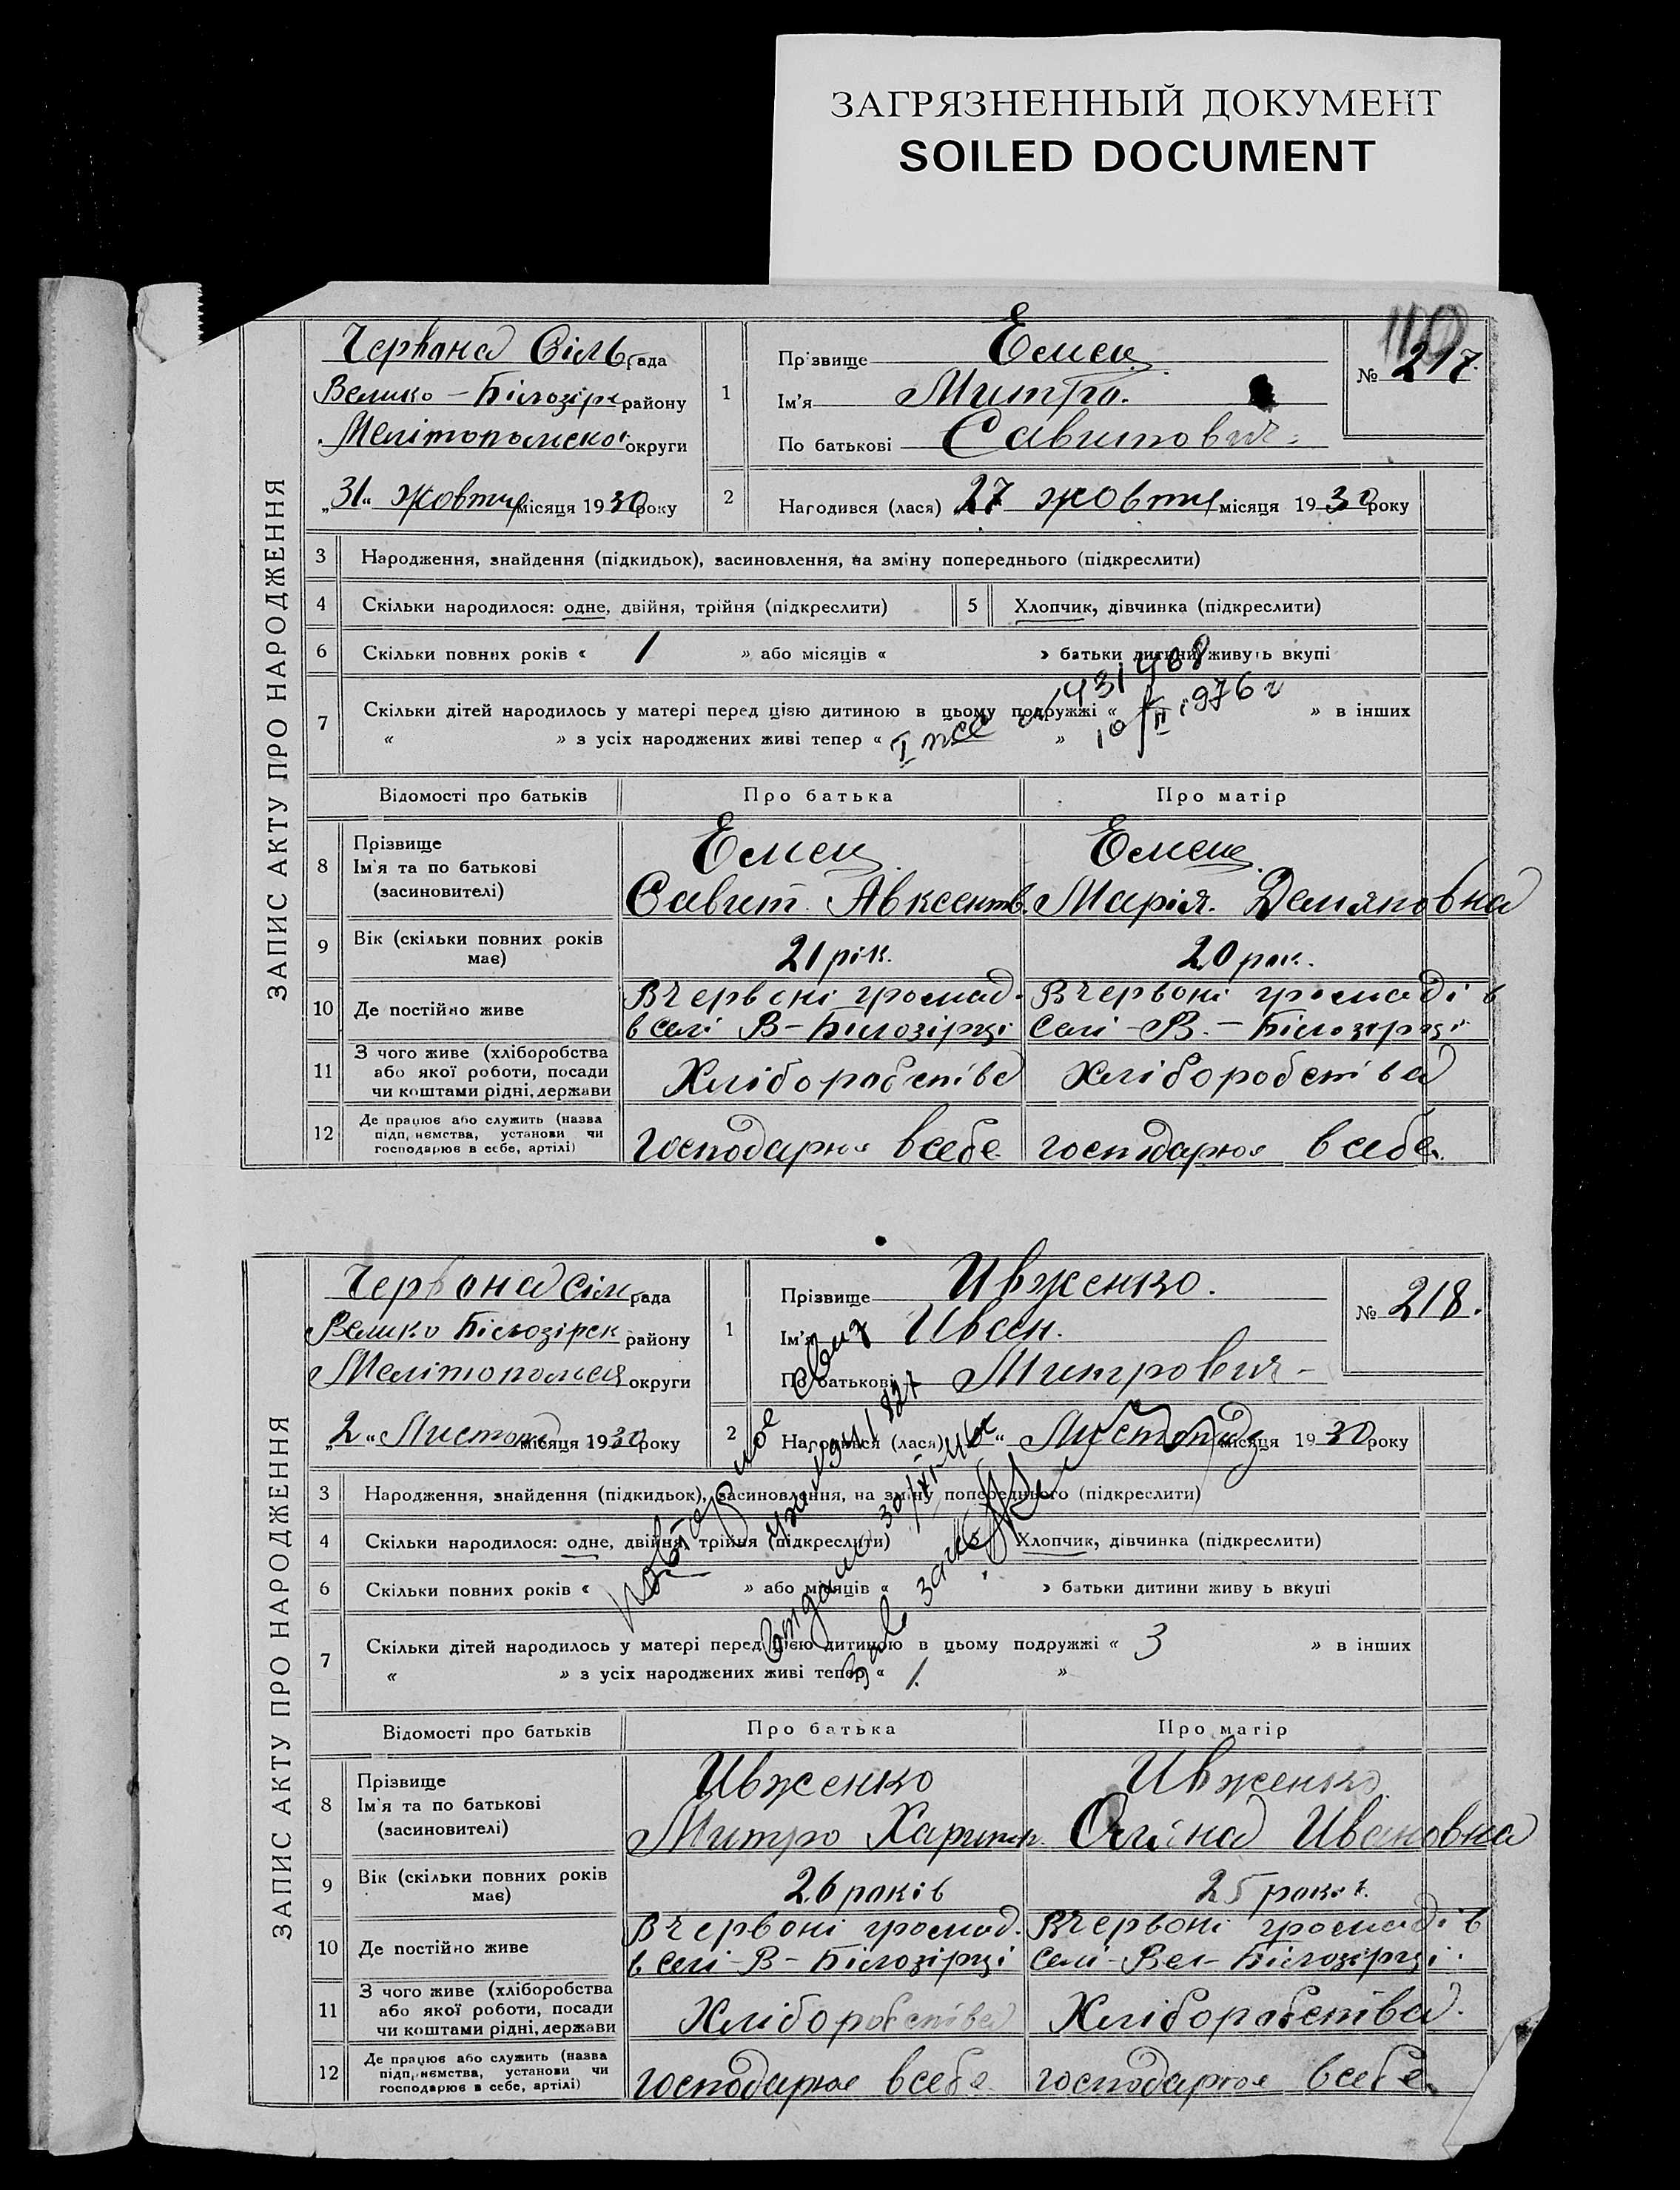 ЗАГРЯЗНЕННЫЙ ДОКУМЕНТ
SOILED DOCUMENT
110
ЗАПИС АКТУ ПРО НАРОДЖЕННЯ
Червона Сіль рада
Велико-Білозірс району
Мелітопольської округи
„31“ жовтня місяця 1930 року
1
Прізвище Емец
Ім'я Митро.
По батькові Савитович
№ 217.
2
Народився (лася) 27 жовтня місяця 1930 року
3 Народження, знайдення (підкидьок), засиновлення, на зміну попереднього (підкреслити)
4 Скільки народилося: одне, двійня, трійня (підкреслити) 5 Хлопчик, дівчинка (підкреслити)
6 Скільки повних років « 1 » або місяців « » батьки дитини живуть вкупі
7 Скільки дітей народилось у матері перед цією дитиною в цьому подружжі « » в інших
« » з усіх народжених живі тепер « »
431408
10/II 1976 г
Відомості про батьків Про батька Про матір
8 Прізвище
Ім'я та по батькові
(засиновителі)
Емец
Савит. Авксентів.
Емець
Марія. Демяновна
9 Вік (скільки повних років
має)
21 рік.
20 рок.
10 Де постійно живе
В червоні громад.
в селі В-Білозірці
В червоні громаді в
селі-В.-Білозірці
11 З чого живе (хліборобства
або якої роботи, посади
чи коштами рідні, держави
Хліборобства
Хліборобства
12 Де працює або служить (назва
підприємства, установи чи
господарює в себе, артілі)
господарює в себе
господарює в себе.
ЗАПИС АКТУ ПРО НАРОДЖЕННЯ
Червона Сіль рада
Велико Білозірск району
Мелітополься округи
„2“ Листопад місяця 1930 року
1
Прізвище Ивженко.
Ім'я Иван.
По батькові Митрович-
№ 218.
2
Народився (лася) “ Листопаду місяця 1930 року
3 Народження, знайдення (підкидьок), засиновлення, на зміну попереднього (підкреслити)
4 Скільки народилося: одне, двійня, трійня (підкреслити) 5 Хлопчик, дівчинка (підкреслити)
6 Скільки повних років « » або місяців « » батьки дитини живуть вкупі
7 Скільки дітей народилось у матері перед цією дитиною в цьому подружжі « 3 » в інших
« » з усіх народжених живі тепер « 1. »
Відомості про батьків Про батька Про матір
8 Прізвище
Ім'я та по батькові
(засиновителі)
Ивженко
Митро Харитон.
Ивженко
Оляна Ивановна
9 Вік (скільки повних років
має)
26 років
25 років.
10 Де постійно живе
В червоні громад.
в селі-В-Білозірці
В червоні громаді в
селі-Вел-Білозірці.
11 З чого живе (хліборобства
або якої роботи, посади
чи коштами рідні, держави
Хліборобства
Хліборобства.
12 Де працює або служить (назва
підприємства, установи чи
господарює в себе, артілі)
господарює в себе
господарює в себе.